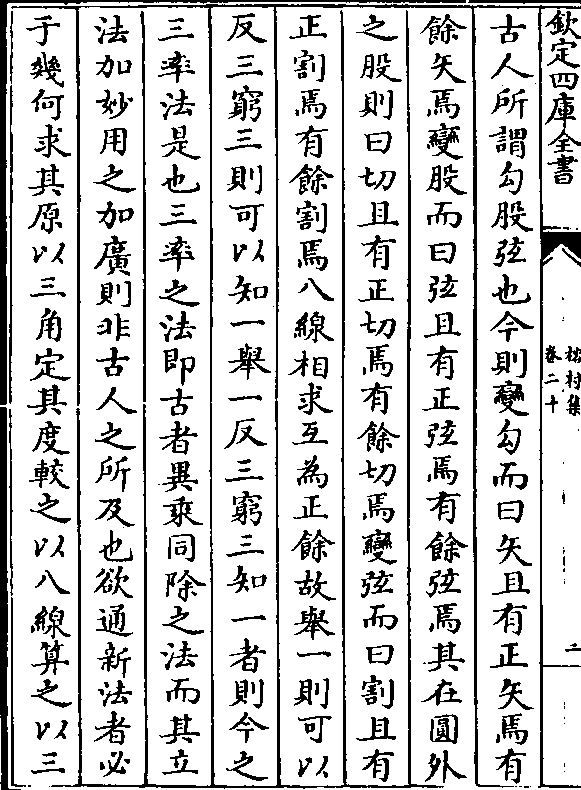 欽定四庫全書
榕村集
卷二十
二
古人所謂勾股弦也今則變勾而曰矢且有正矢焉有
餘矢焉變股而曰弦且有正弦焉有餘弦焉其在圓外
之股則曰切且有正切焉有餘切焉變弦而曰割且有
正割焉有餘割焉八線相求互為正餘故舉一則可以
反三窮三則可以知一舉一反三窮三知一者則今之
三率法是也三率之法即古者異乘同除之法而其立
法加妙用之加廣則非古人之所及也欲通新法者必
于幾何求其原以三角定其度較之以八線算之以三